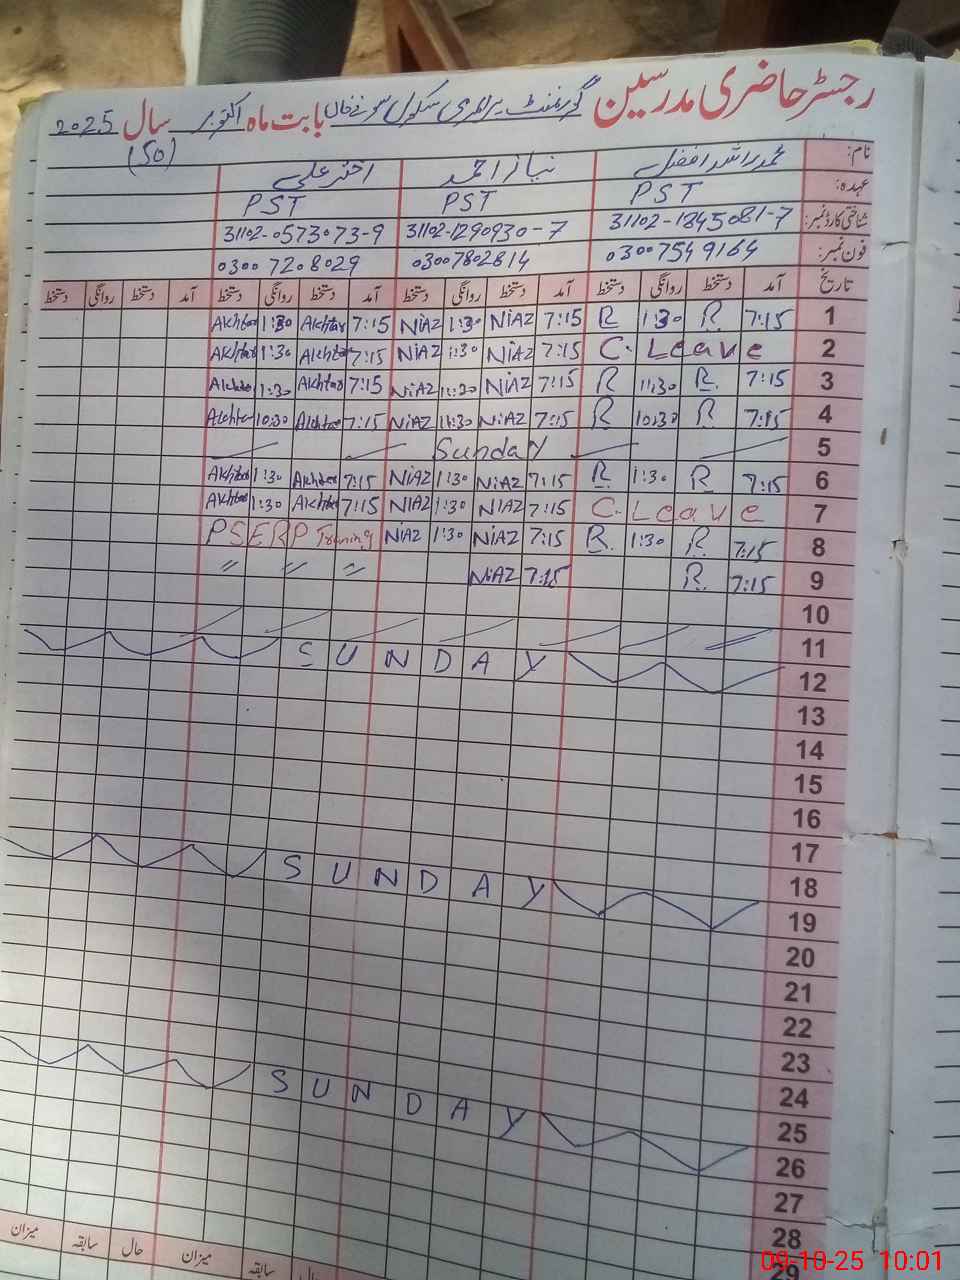 رجسٹر حاضری مدرسین گورنمنٹ پرائمری سکول سونے خان بابت ماہ اکتوبر سال 2025
(50)
نام: محمد راشد افضل نیاز احمد اختر علی
عہدہ: PST PST PST
شناختی کارڈ نمبر: 31102-1845081-7 31102-1290930-7 31102-0573073-9
فون نمبر: 03007549164 03007802814 03007208029
تاریخ آمد دستخط روانگی دستخط آمد دستخط روانگی دستخط آمد دستخط روانگی دستخط آمد دستخط روانگی دستخط
Akhtar 1:30 Akhtar 7:15 NiAZ 1:30 NiAZ 7:15 R 1:30 R 7:15 1
Akhtar 1:30 Akhtar 7:15 NiAZ 1:30 NiAZ 7:15 C. Leave 2
Akhtar 1:30 Akhtar 7:15 NiAZ 11:30 NiAZ 7:15 R 11:30 R. 7:15 3
Akhtar 10:30 Akhtar 7:15 NiAZ 11:30 NiAZ 7:15 R 10:30 R 7:15 4
Sunday 5
Akhtar 1:30 Akhtar 7:15 NiAZ 1:30 NiAZ 7:15 R. 1:30 R 7:15 6
Akhtar 1:30 Akhtar 7:15 NIAZ 1:30 NiAZ 7:15 C. Leave 7
PSERP Training NiAZ 1:30 NiAZ 7:15 R. 1:30 R 7:15 8
〃 〃 〃 NiAZ 7:15 R. 7:15 9
10
11
SUNDAY 12
13
14
15
16
17
18
SUNDAY 19
20
21
22
23
24
25
SUNDAY 26
27
28
29
میزان سابقہ حال میزان سابقہ حال
09-10-25 10:01